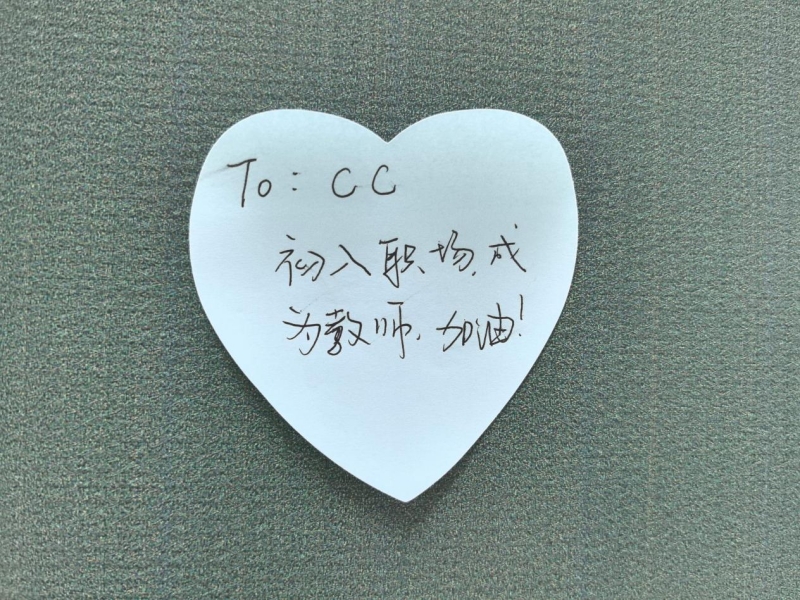 To: CC
初入职场,成
为教师,加油!